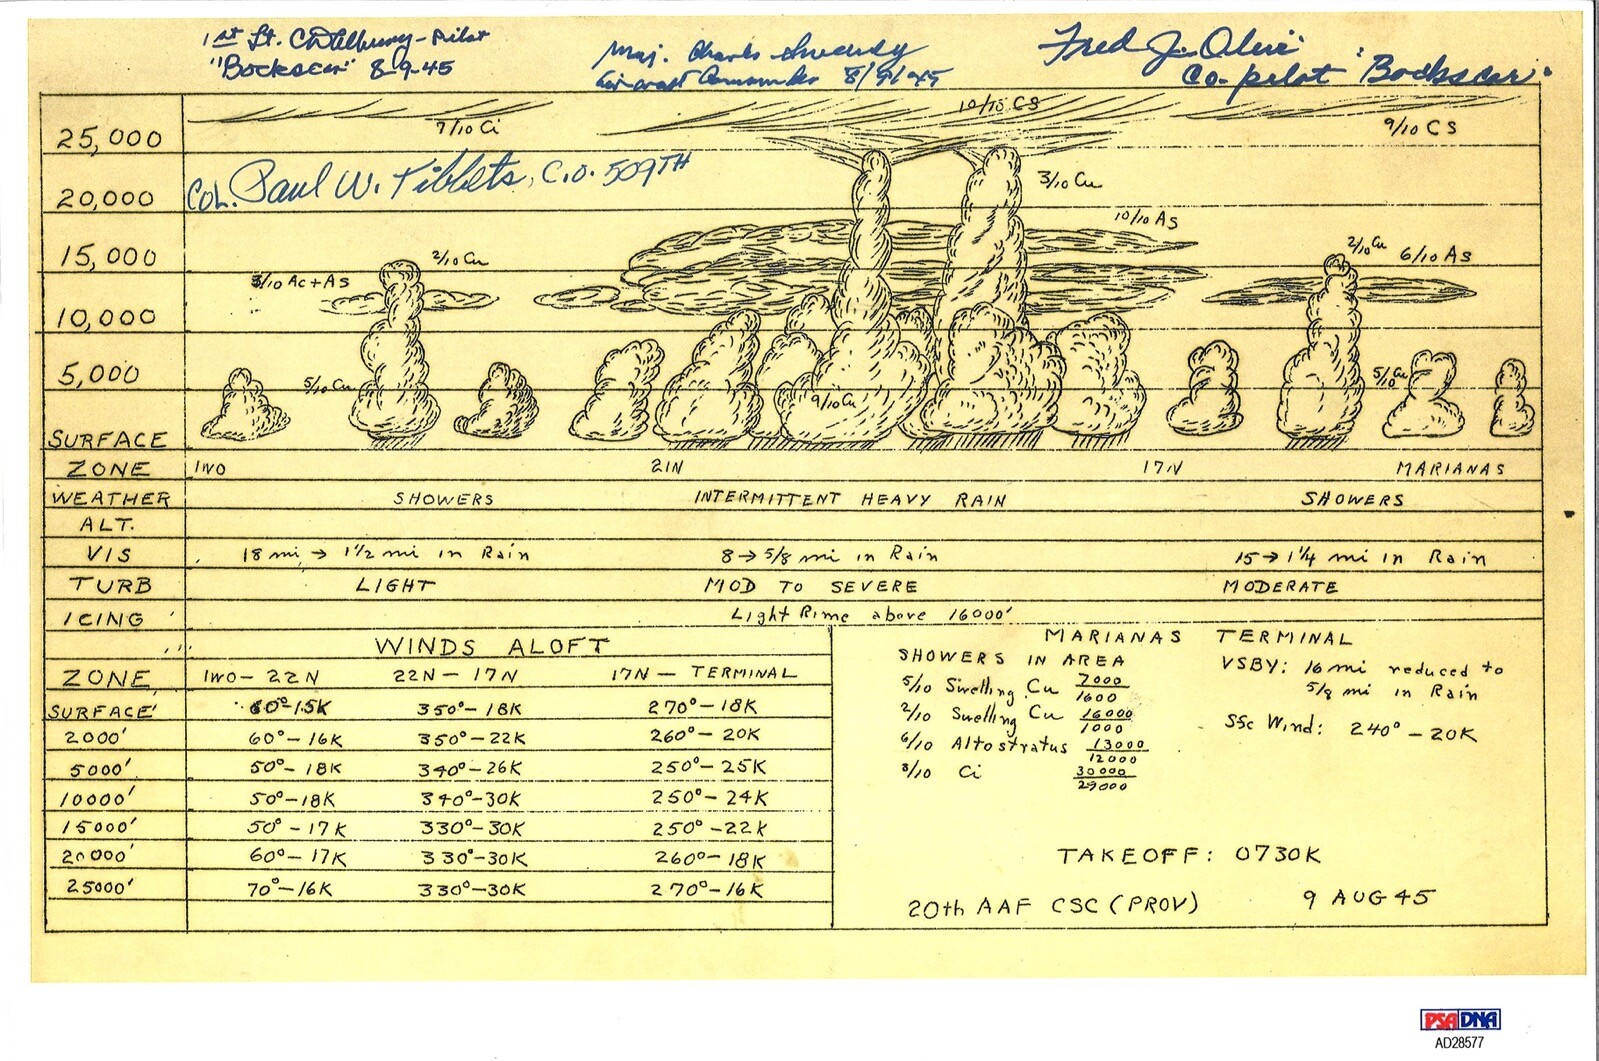 1st Lt. CD Albury - Pilot
"Bockscar" 8-9-45
Maj. Charles Sweeney
Aircraft Commander 8/9/45
Fred J. Olivi
Co-pilot "Bockscar"
10/10 CS
7/10 Ci
9/10 CS
25,000
COL. Paul W. Tibbets, C.O. 509TH
3/10 Cu
20,000
10/10 As
2/10 Cu
6/10 As
15,000
2/10 Cu
3/10 Ac + As
10,000
5,000
5/10 Cu
9/10 Cu
5/10 Cu
SURFACE
ZONE IWO 21N 17N MARIANAS
WEATHER SHOWERS INTERMITTENT HEAVY RAIN SHOWERS
ALT.
VIS 18 mi → 1 1/2 mi in Rain 8 → 5/8 mi in Rain 15 → 1 1/4 mi in Rain
TURB LIGHT MOD TO SEVERE MODERATE
ICING Light Rime above 16000'
WINDS ALOFT
ZONE IWO - 22N 22N - 17N 17N - TERMINAL
SURFACE 60°-15K 350°-18K 270°-18K
2000' 60°-16K 350°-22K 260°-20K
5000' 50°-18K 340°-26K 250°-25K
10000' 50°-18K 340°-30K 250°-24K
15000' 50°-17K 330°-30K 250°-22K
20000' 60°-17K 330°-30K 260°-18K
25000' 70°-16K 330°-30K 270°-16K
MARIANAS TERMINAL
SHOWERS IN AREA
5/10 Swelling Cu 7000/1600
2/10 Swelling Cu 16000/1000
6/10 Altostratus 13000/12000
8/10 Ci 30000/29000
VSBY: 16 mi reduced to
5/8 mi in Rain
Sfc Wind: 240° - 20K
TAKEOFF: 0730K
20th AAF CSC (PROV) 9 AUG 45
PSA DNA
AD28577